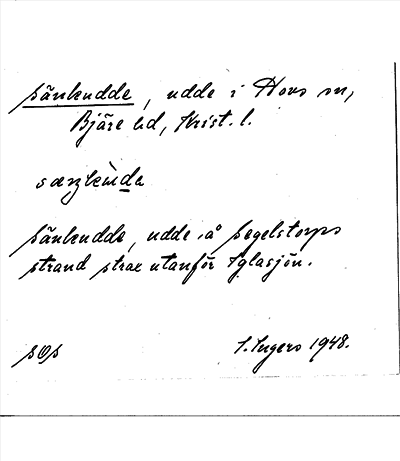 sänkudde, udde i Hovs sn,
Bjäre hd, Krist. l.
sänkudde, udde å Segelstorps
strand strax utanför Iglasjön.
SOS
I. Ingers 1948.